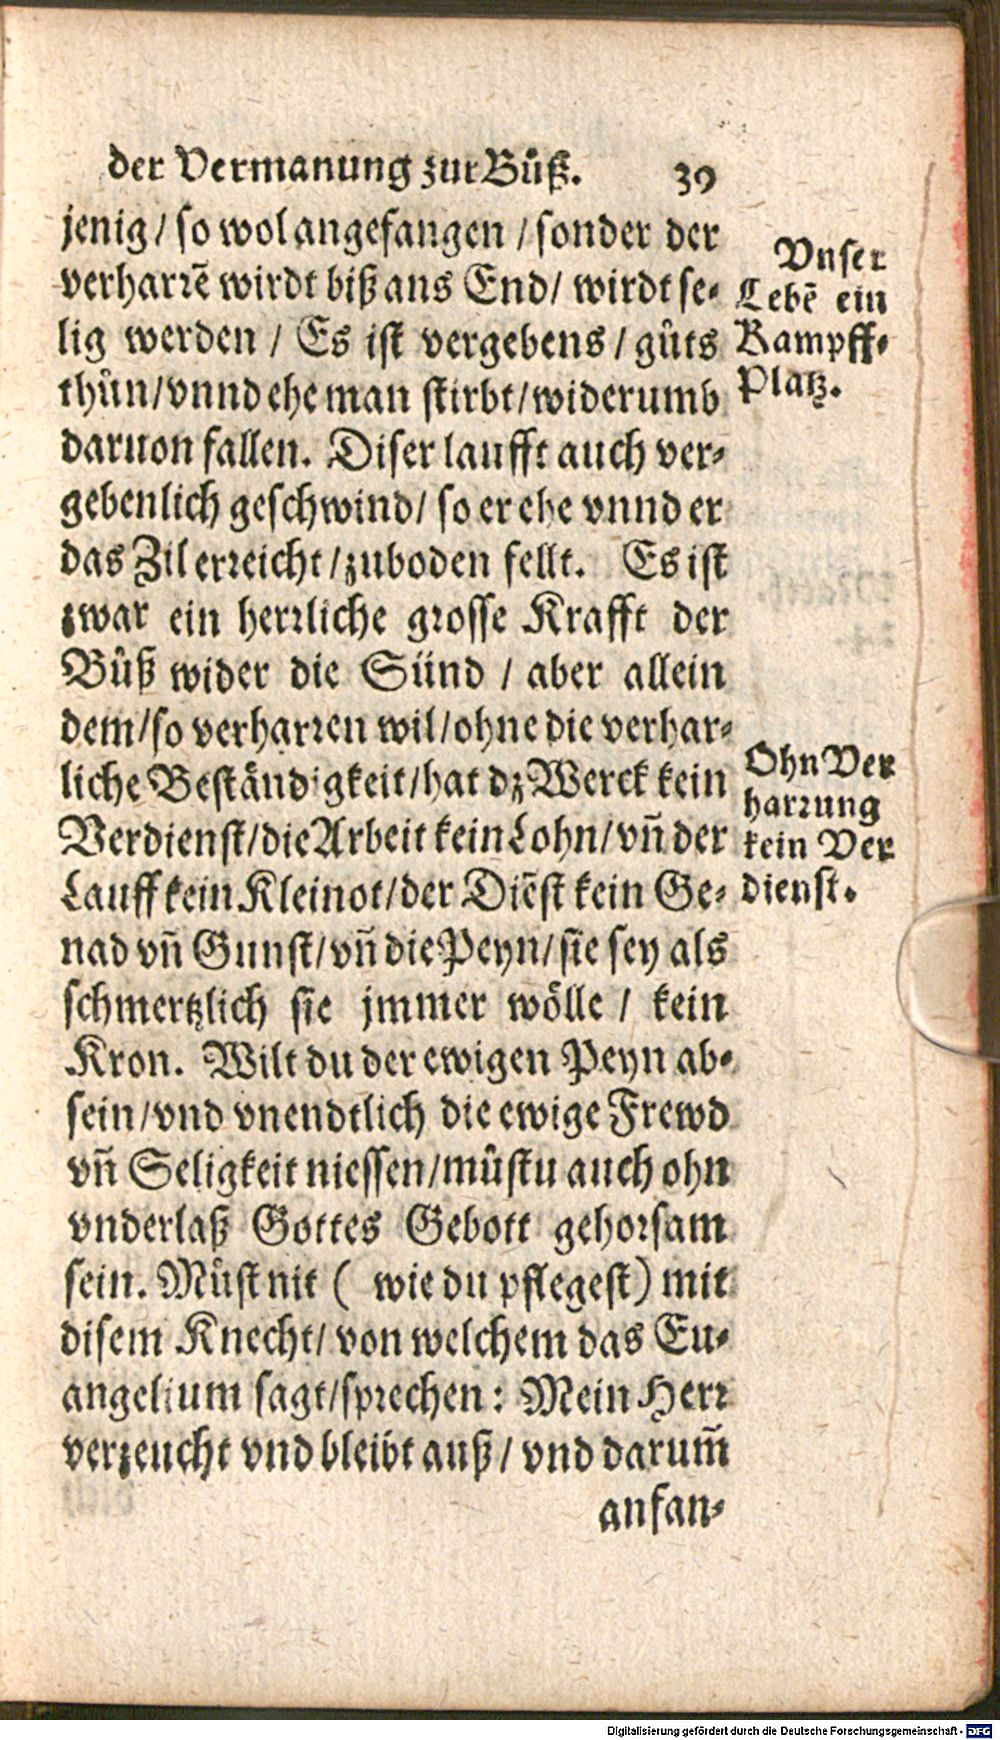 der Vermanung zur Bůß. 39
jenig / so wol angefangen / sonder der
verharrẽ wirdt biß ans End / wirdt se-
lig werden / Es ist vergebens / gůts
thůn / vnnd ehe man stirbt / widerumb
daruon fallen. Diser laufft auch ver-
gebenlich geschwind / so er ehe vnnd er
das Zil erreicht / zuboden fellt. Es ist
zwar ein herrliche grosse Krafft der
Bůß wider die Sünd / aber allein
dem / so verharren wil / ohne die verhar-
liche Beständigkeit / hat dz Werck kein
Verdienst / die Arbeit kein Lohn / vñ der
Lauff kein Kleinot / der Diẽst kein Ge-
nad vñ Gunst / vñ die Peyn / sie sey als
schmertzlich sie jmmer wölle / kein
Kron. Wilt du der ewigen Peyn ab-
sein / vnd vnendtlich die ewige Frewd
vñ Seligkeit niessen / můstu auch ohn
vnderlaß Gottes Gebott gehorsam
sein. Můst nit ( wie du pflegest) mit
disem Knecht / von welchem das Eu-
angelium sagt / sprechen : Mein Herr
verzeucht vnd bleibt auß / vnd darum̃
anfan-
Vnser
Lebẽ ein
Kampff-
Platz.
Ohn Ver
harrung
kein Ver
dienst.
Digitalisierung gefördert durch die Deutsche Forschungsgemeinschaft - DFG